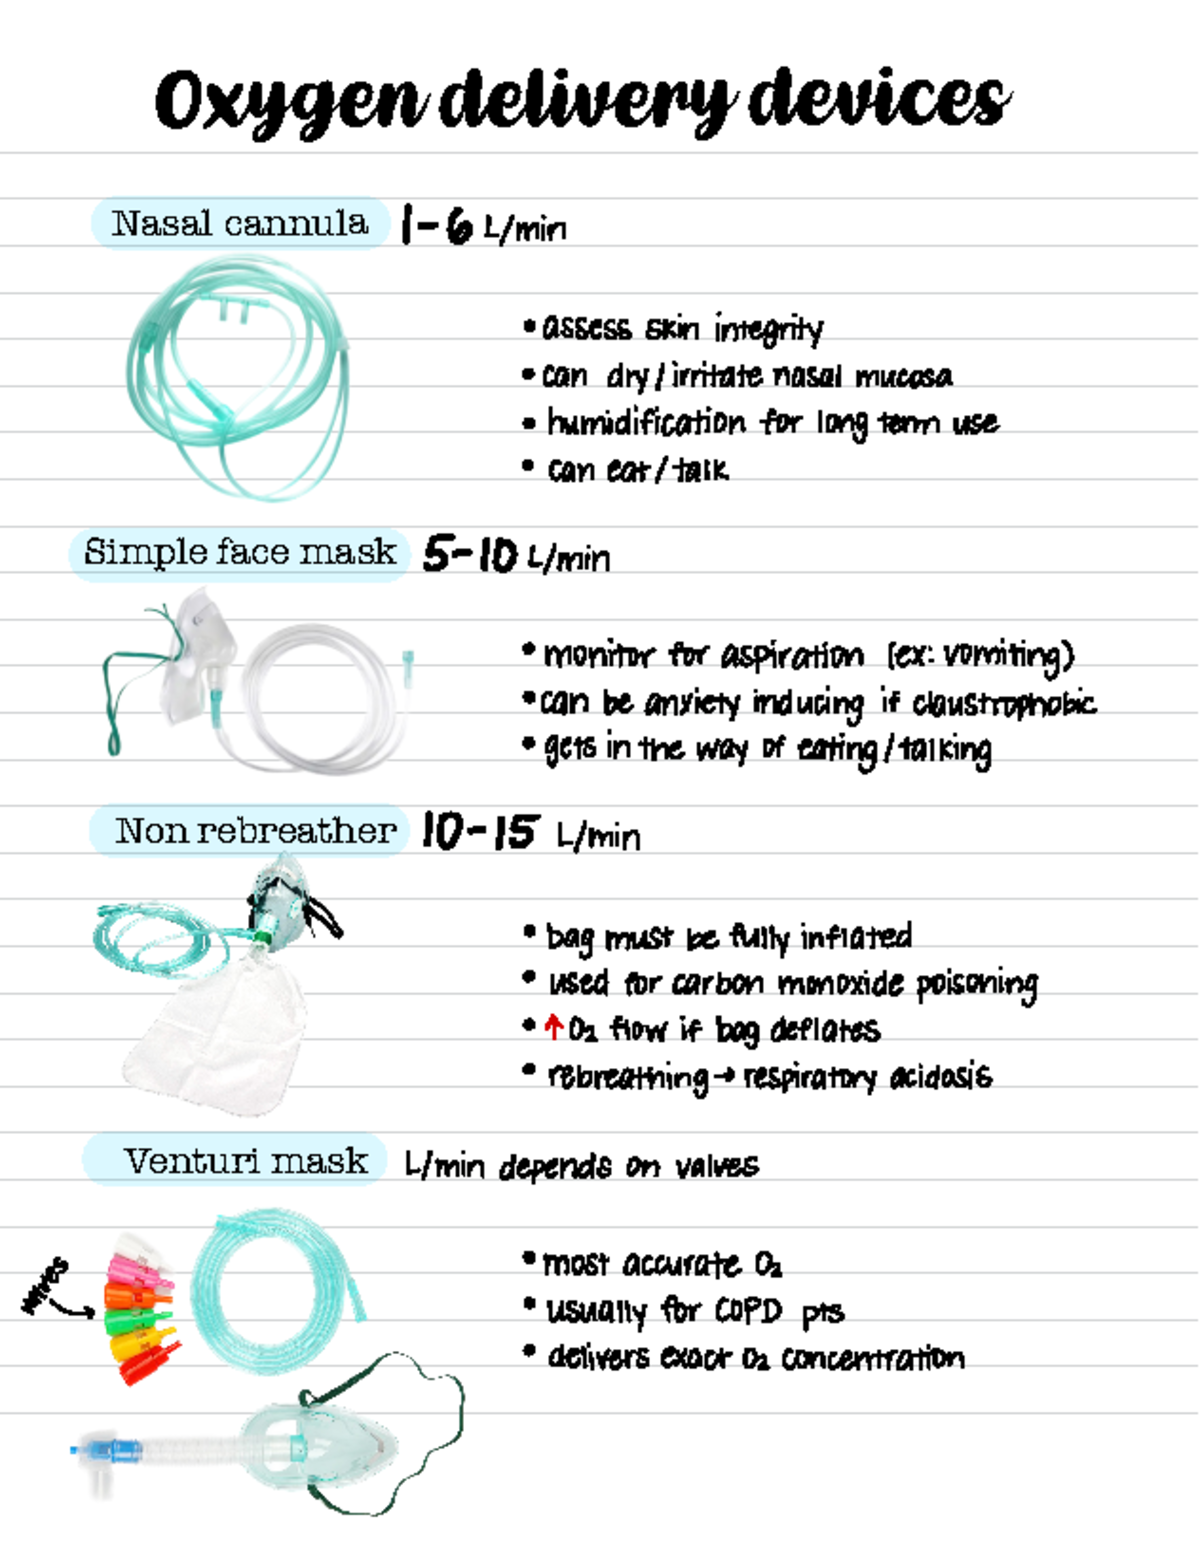 Oxygen delivery devices
Nasal cannula 1-6 L/min
• assess skin integrity
• can dry/irritate nasal mucosa
• humidification for long term use
• can eat/talk
Simple face mask 5-10 L/min
• monitor for aspiration (ex: vomiting)
• can be anxiety inducing if claustrophobic
• gets in the way of eating/talking
Non rebreather 10-15 L/min
• bag must be fully inflated
• used for carbon monoxide poisoning
• ↑ O₂ flow if bag deflates
• rebreathing → respiratory acidosis
Venturi mask L/min depends on valves
valves
• most accurate O₂
• usually for COPD pts
• delivers exact O₂ concentration